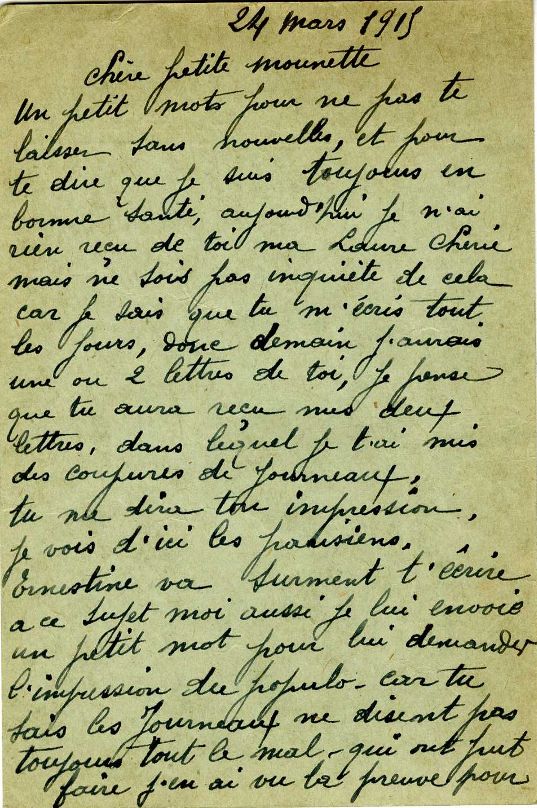 24 mars 1915
Chère petite mounette
Un petit mots pour ne pas te
laisser sans nouvelles, et pour
te dire que je suis toujours en
bonne santé, aujourd'hui je n'ai
rien recu de toi ma Laure Chérie
mais ne sois pas inquiète de cela
car je sais que tu m'écris tout
les jours, donc demain j'aurais
une ou 2 lettres de toi, je pense
que tu aura recu mes deux
lettres, dans lèquel je t'ai mis
des coupures de journeaux,
tu me dira ton impression,
je vois d'ici les parisiens,
Ernestine va surment t'écrire
a ce sujet moi aussi je lui envoie
un petit mot pour lui demander
l'impression du populo - car tu
sais les journeaux ne disent pas
toujours tout le mal - qui ont put
faire j'en ai vu la preuve pour